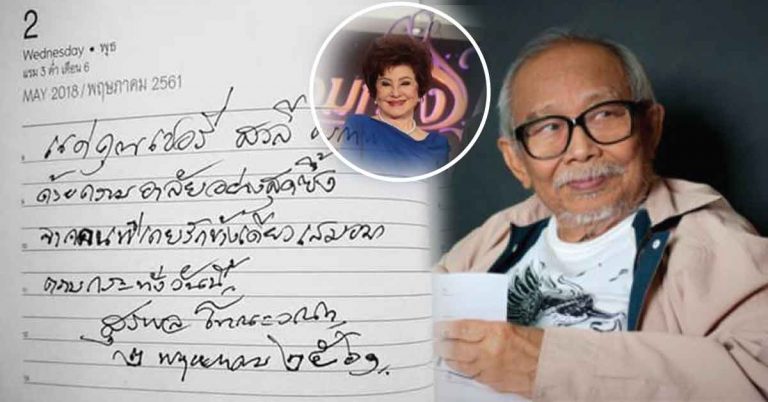 2
Wednesday • พุธ
แรม 3 ค่ำ เดือน 6
MAY 2018/พฤษภาคม 2561
แด่คุณเชอรี่ สวลี
ด้วยความอาลัยอย่างสุดซึ้ง
จากคนที่เคยรักข้างเดียวเสมอมา
ตราบกระทั่งวันนี้
สุรพล โทณะวณิก
๒ พฤษภาคม ๒๕๖๑